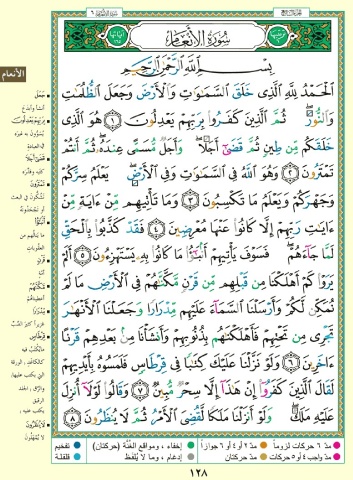 سُورَةُ الْأَنْعَامِ
بِسْمِ اللَّهِ الرَّحْمَٰنِ الرَّحِيمِ
الْحَمْدُ لِلَّهِ الَّذِي خَلَقَ السَّمَاوَاتِ وَالْأَرْضَ وَجَعَلَ الظُّلُمَاتِ
وَالنُّورَ ۖ ثُمَّ الَّذِينَ كَفَرُوا بِرَبِّهِمْ يَعْدِلُونَ ﴿١﴾ هُوَ الَّذِي
خَلَقَكُم مِّن طِينٍ ثُمَّ قَضَىٰ أَجَلًا ۖ وَأَجَلٌ مُّسَمًّى عِندَهُ ۖ ثُمَّ أَنتُمْ
تَمْتَرُونَ ﴿٢﴾ وَهُوَ اللَّهُ فِي السَّمَاوَاتِ وَفِي الْأَرْضِ ۖ يَعْلَمُ سِرَّكُمْ
وَجَهْرَكُمْ وَيَعْلَمُ مَا تَكْسِبُونَ ﴿٣﴾ وَمَا تَأْتِيهِم مِّنْ آيَةٍ مِّنْ
آيَاتِ رَبِّهِمْ إِلَّا كَانُوا عَنْهَا مُعْرِضِينَ ﴿٤﴾ فَقَدْ كَذَّبُوا بِالْحَقِّ
لَمَّا جَاءَهُمْ ۖ فَسَوْفَ يَأْتِيهِمْ أَنبَاءُ مَا كَانُوا بِهِ يَسْتَهْزِئُونَ ﴿٥﴾ أَلَمْ
يَرَوْا كَمْ أَهْلَكْنَا مِن قَبْلِهِم مِّن قَرْنٍ مَّكَّنَّاهُمْ فِي الْأَرْضِ مَا لَمْ
نُمَكِّن لَّكُمْ وَأَرْسَلْنَا السَّمَاءَ عَلَيْهِم مِّدْرَارًا وَجَعَلْنَا الْأَنْهَارَ
تَجْرِي مِن تَحْتِهِمْ فَأَهْلَكْنَاهُم بِذُنُوبِهِمْ وَأَنشَأْنَا مِن بَعْدِهِمْ قَرْنًا
آخَرِينَ ﴿٦﴾ وَلَوْ نَزَّلْنَا عَلَيْكَ كِتَابًا فِي قِرْطَاسٍ فَلَمَسُوهُ بِأَيْدِيهِمْ
لَقَالَ الَّذِينَ كَفَرُوا إِنْ هَٰذَا إِلَّا سِحْرٌ مُّبِينٌ ﴿٧﴾ وَقَالُوا لَوْلَا أُنزِلَ
عَلَيْهِ مَلَكٌ ۖ وَلَوْ أَنزَلْنَا مَلَكًا لَّقُضِيَ الْأَمْرُ ثُمَّ لَا يُنظَرُونَ ﴿٨﴾
الأنعام
جَعَلَ
قَرْنٍ
مِدْرَارًا
قِرْطَاسٍ
لَا يُنظَرُونَ
لا يُمهلون
مدّ ٦ حركات لزوماً
مدّ ٢ أو ٤ أو ٦ جوازاً
إخفاء، ومواقع الغُنَّة (حركتان)
تفخيم
مدّ واجب ٤ أو ٥ حركات
مدّ حركتان
إدغام، وما لا يُلفَظ
قلقلة
١٢٨